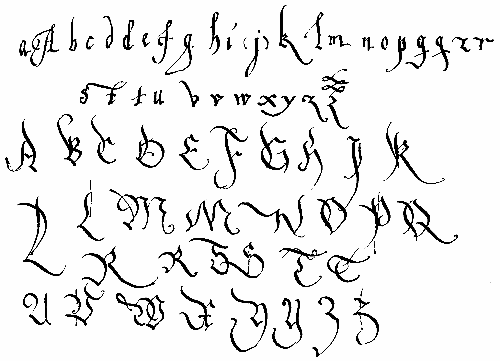 a A b c d d e f g h i j k l m n o p q q r r
s t t u v v w x y z z
A B C D E F G H J K
L L M M N O P R
R R S S T T
U V W X Y Y Z Z